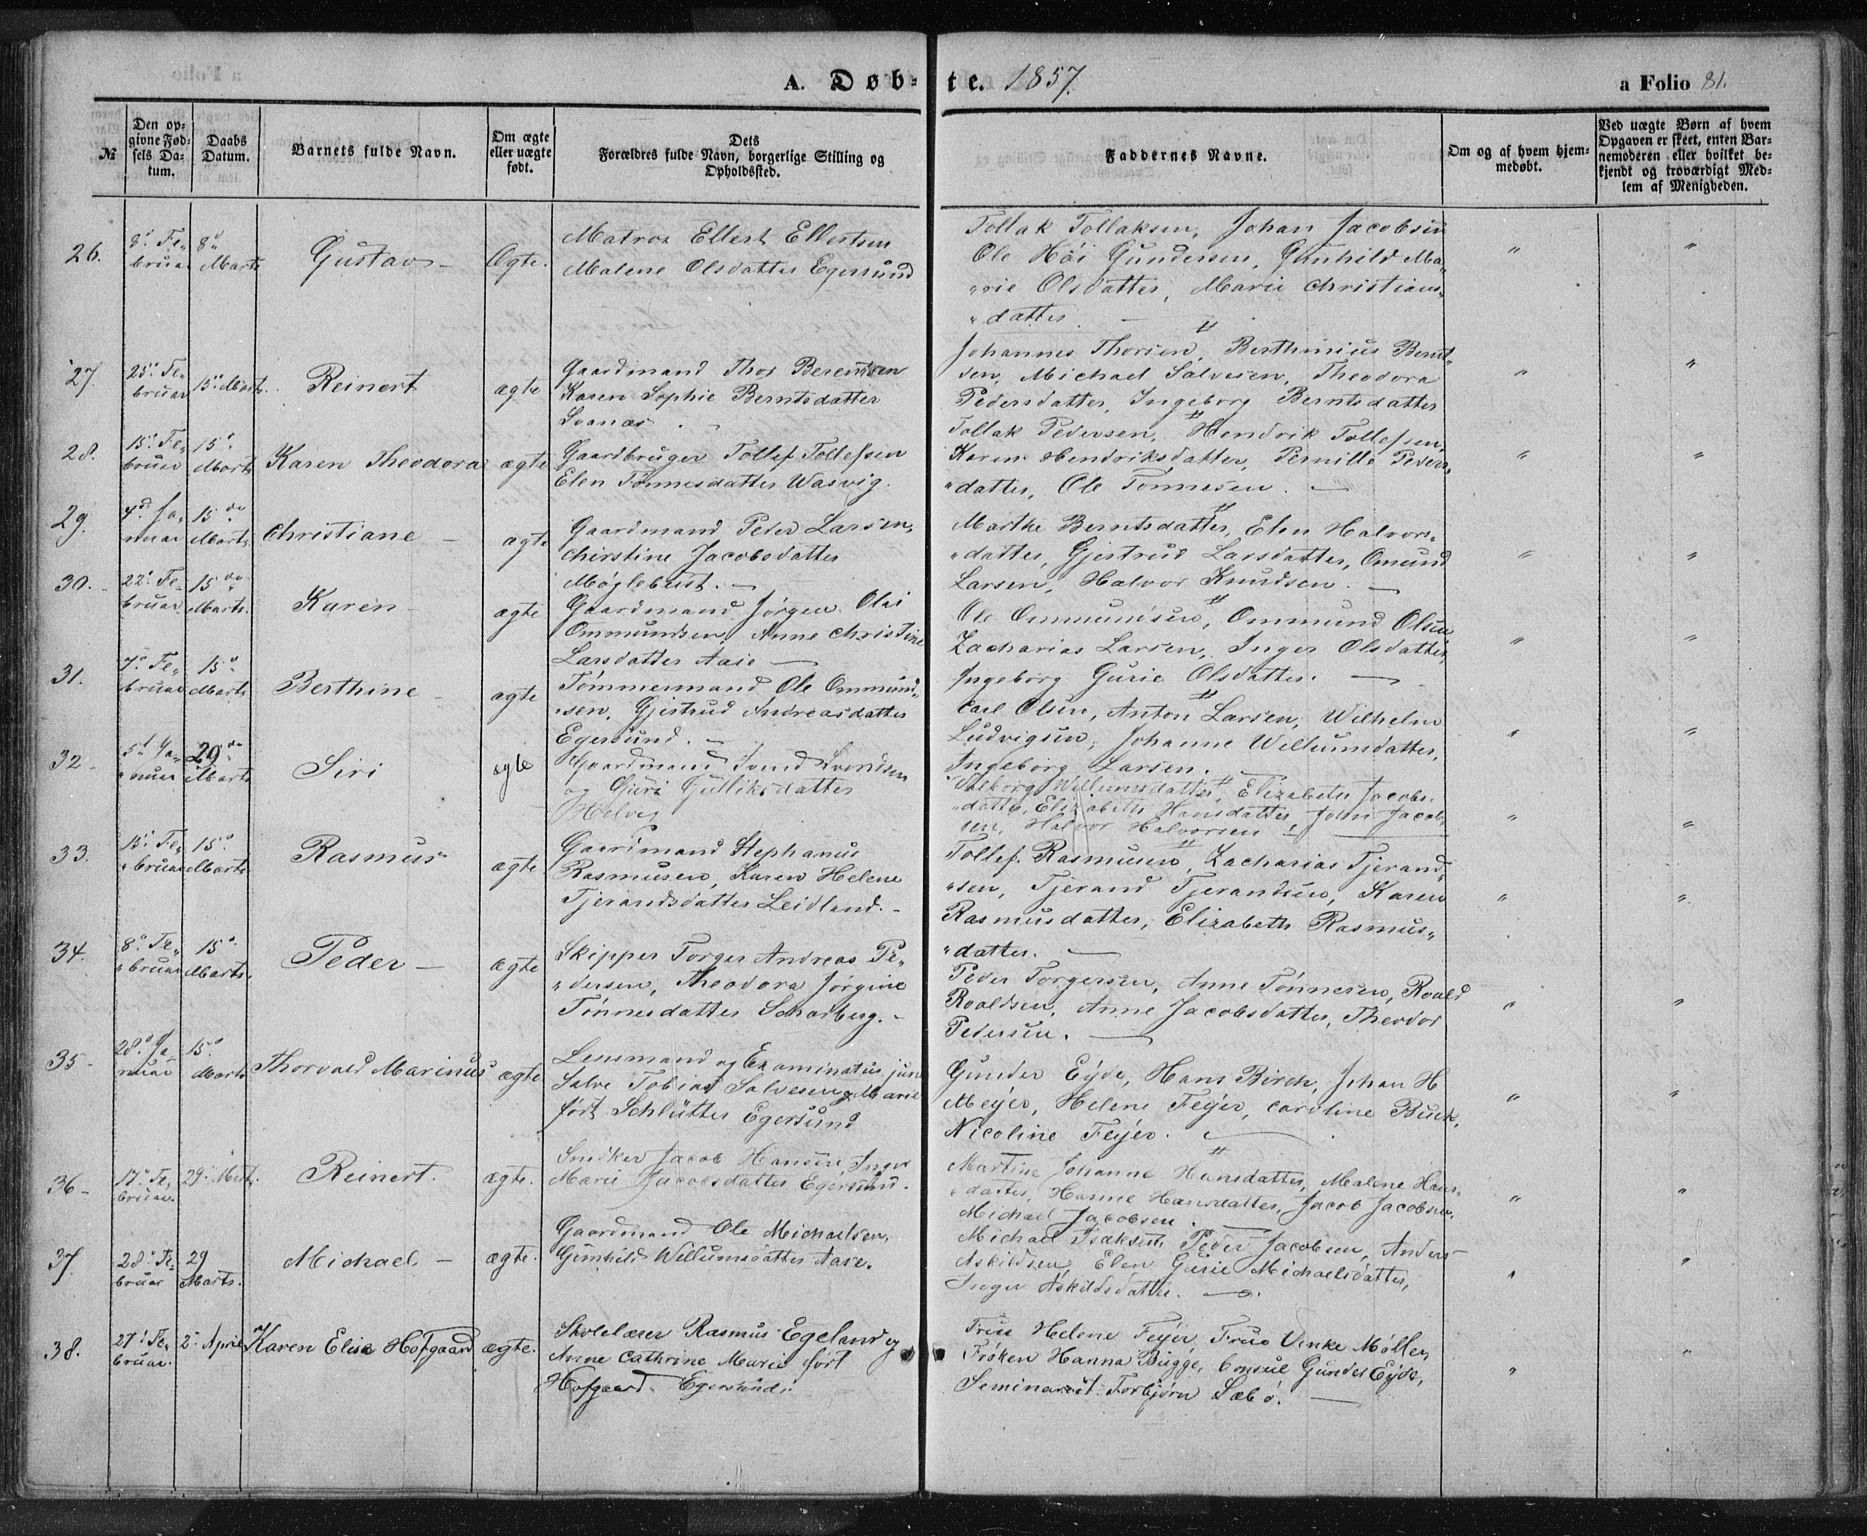 A. Døb=te. 1857.
a Folio 81.
№
Den op=
givne Fød=
sels Da=
tum.
Daabs
Datum.
Barnets fulde Navn.
Om ægte
eller uægte
født.
Dets
Forældres fulde Navn, borgerlige Stilling og
Opholdssted.
Faddernes Navne.
Om og af hvem hjem=
medøbt.
Ved uægte Børn af hvem
Opgaven er skeet, enten Bar=
nemoderen eller hvilket be=
kjendt og troværdigt Med=
lem af Menigheden.
26.
8d Fe„
bruar
8d
Marts
Gustav –
Ægte.
Matros Ellert Ellertsen
Malene Olsdatter Egersund
Tollak Tollaksen, Johan Jacobsen
Ole Høi Gundersen, Gunhild Ma„
„rie Olsdatter, Marie Christians„
„datter
27.
25. Fe„
bruar
15. Marts
Reinert
ægte
Gaardmand Thos Berentsen
Karen Sophie Berntsdatter
Svanæs
Johannes Thorsen, Berthinius Bernt„
sen, Michael Salvesen, Theodora
Pedersdatter, Ingeborg Berntsdatter
28.
15. Fe„
bruar
15.
Marts
Karen Theodora
ægte
Gaardbruger Tollef Tollefsen
Elen Tønnesdatter Wasvig.
Tollak Pedersen, Hendrik Tollefsen,
Karen Hendriksdatter, Pernille Peders„
„datter, Ole Tønnesen. –
29.
4d Ja„
nuar
15do
Marts
Christiane –
ægte
Gaardmand Peder Larsen,
Christine Jacobsdatter
Møglebust. –
Marthe Berntsdatter, Elen Halvors„
„datter, Gjertrud Larsdatter, Omund
Larsen, Halvor Knudsen. –
30.
22. Fe„
bruar
15do
Marts.
Karen
ægte
Gaardmand Jørgen Olai
Ommundsen, Anne Christine
Larsdatter Aase –
Ole Ommundsen, Ommund Olsen
Zacharias Larsen, Inger Olsdatter,
Ingeborg Gurie Olsdatter. –
31.
7. Fe„
bruar
15.
Marts
Berthine –
ægte
Tømmermand Ole Ommund„
„sen, Gjertrud Andreasdatter
Egersund. –
Carl Olsen, Anton Larsen, Wilhelm
Ludvigsen, Johanne Willumsdatter,
Ingeborg Larsen.
32.
5d Ja„
„nuar
29do
Marts
Siri
ægte
Gaardmand Svend Svendsen
og Guri Gulliksdatter
Helvig
Valborg Willumsdatter, Elizabeth Jacobs„
„datter, Elizabeth Hansdatter, John Jacob„
sen, Halvor Halvorsen
33.
15. Fe„
„bruar
15.
Marts
Rasmus
ægte
Gaardmand Stephanus
Rasmusen, Karen Helene
Tjerandsdatter Leidland. –
Tollef Rasmusen, Zacharias Tjerand„
„sen, Tjerand Tjerandsen, Karen
Rasmusdatter, Elizabeth Rasmus„
„datter. –
34.
8. Fe„
„bruar
15.
Marts.
Peder –
ægte
Skipper Torger Andreas Pe„
„dersen, Theodora Jørgine
Tønnesdatter Scharberg. –
Peder Torgersen, Anne Tønnesen, Roald
Roaldsen, Anne Jacobsdatter, Theodor
Pedersen. –
35.
28. Ja„
nuar
15.
Marts
Thorvald Marinus
ægte
Lensmand og Examinatus jur:
Salve Tobias Salvesen, Marie
ført Schlütter Egersund
Gunder Eyde, Hans Birch, Johan H
Meyer, Helene Feyer, Caroline Busch,
Nicoline Feyer.
36.
17. Fe„
bruar.
29. Marts.
Reinert.
ægte.
Snedker Jacob Hansen, Inger
Marie Jacobsdatter Egersund.
Martine Johanne Hansdatter, Malene Hans„
„datter, Hanne Hansdatter, Jacob Jacobsen,
Michael Jacobsen.
37.
28. Fe„
bruar
29
Marts.
Michael –
ægte.
Gaardmand Ole Michaelsen,
Gunhild Willumsdatter Aase.
Michael Isaksen, Peder Jacobsen, Anders
Askildsen, Elen Gurie Michaelsdatter,
Inger Askildsdatter.
38.
27. Fe„
bruar.
2. April
Karen Elise Hofgaard
ægte.
Skolelærer Rasmus Egeland og
Anne Cathrine Marie ført
Hofgaard. Egersund.
Frue Helene Feyer, Frue Vinke Møller,
Frøken Hanna Bugge, Consul Gunder Eyde,
Seminarist Torbjørn Sæbø.